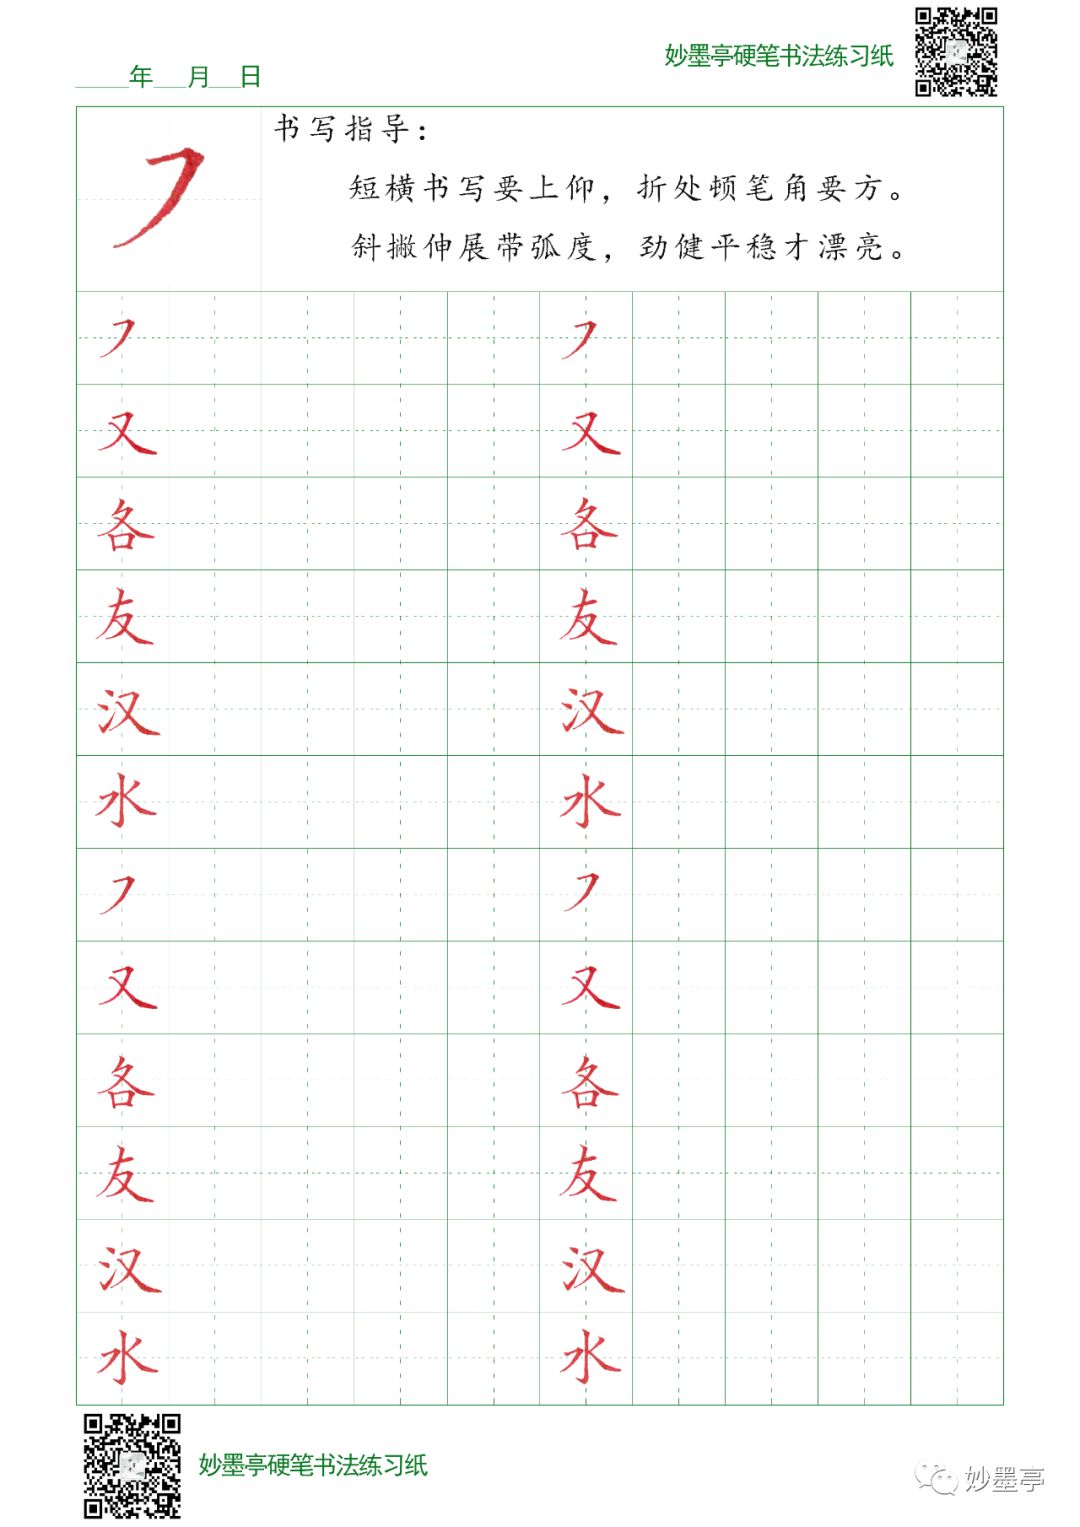 妙墨亭硬笔书法练习纸
____年___月___日
㇇
书写指导：
短横书写要上仰，折处顿笔角要方。
斜撇伸展带弧度，劲健平稳才漂亮。
㇇ ㇇
又 又
各 各
友 友
汉 汉
水 水
㇇ ㇇
又 又
各 各
友 友
汉 汉
水 水
妙墨亭硬笔书法练习纸
妙墨亭